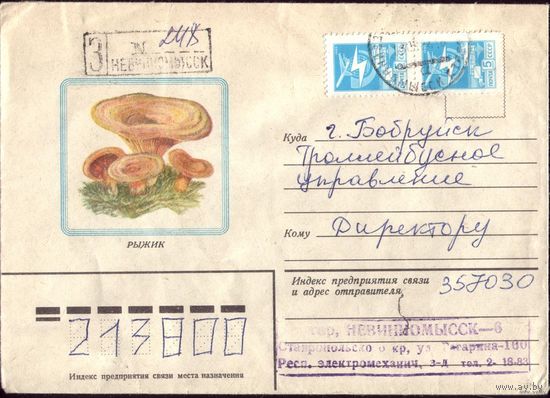 З № 248
НЕВИННОМЫССК
ПОЧТА СССР
6
Куда г. Бобруйск
Троллейбусное
управление
Кому Директору
РЫЖИК
Индекс предприятия связи
и адрес отправителя 357030
213800
Индекс предприятия связи места назначения
гор, НЕВИННОМЫССК—6
Ставропольско о кр, ул Гагарина-180
Респ. электромеханич. З-Д тел. 2- 16.83
www.ay.by